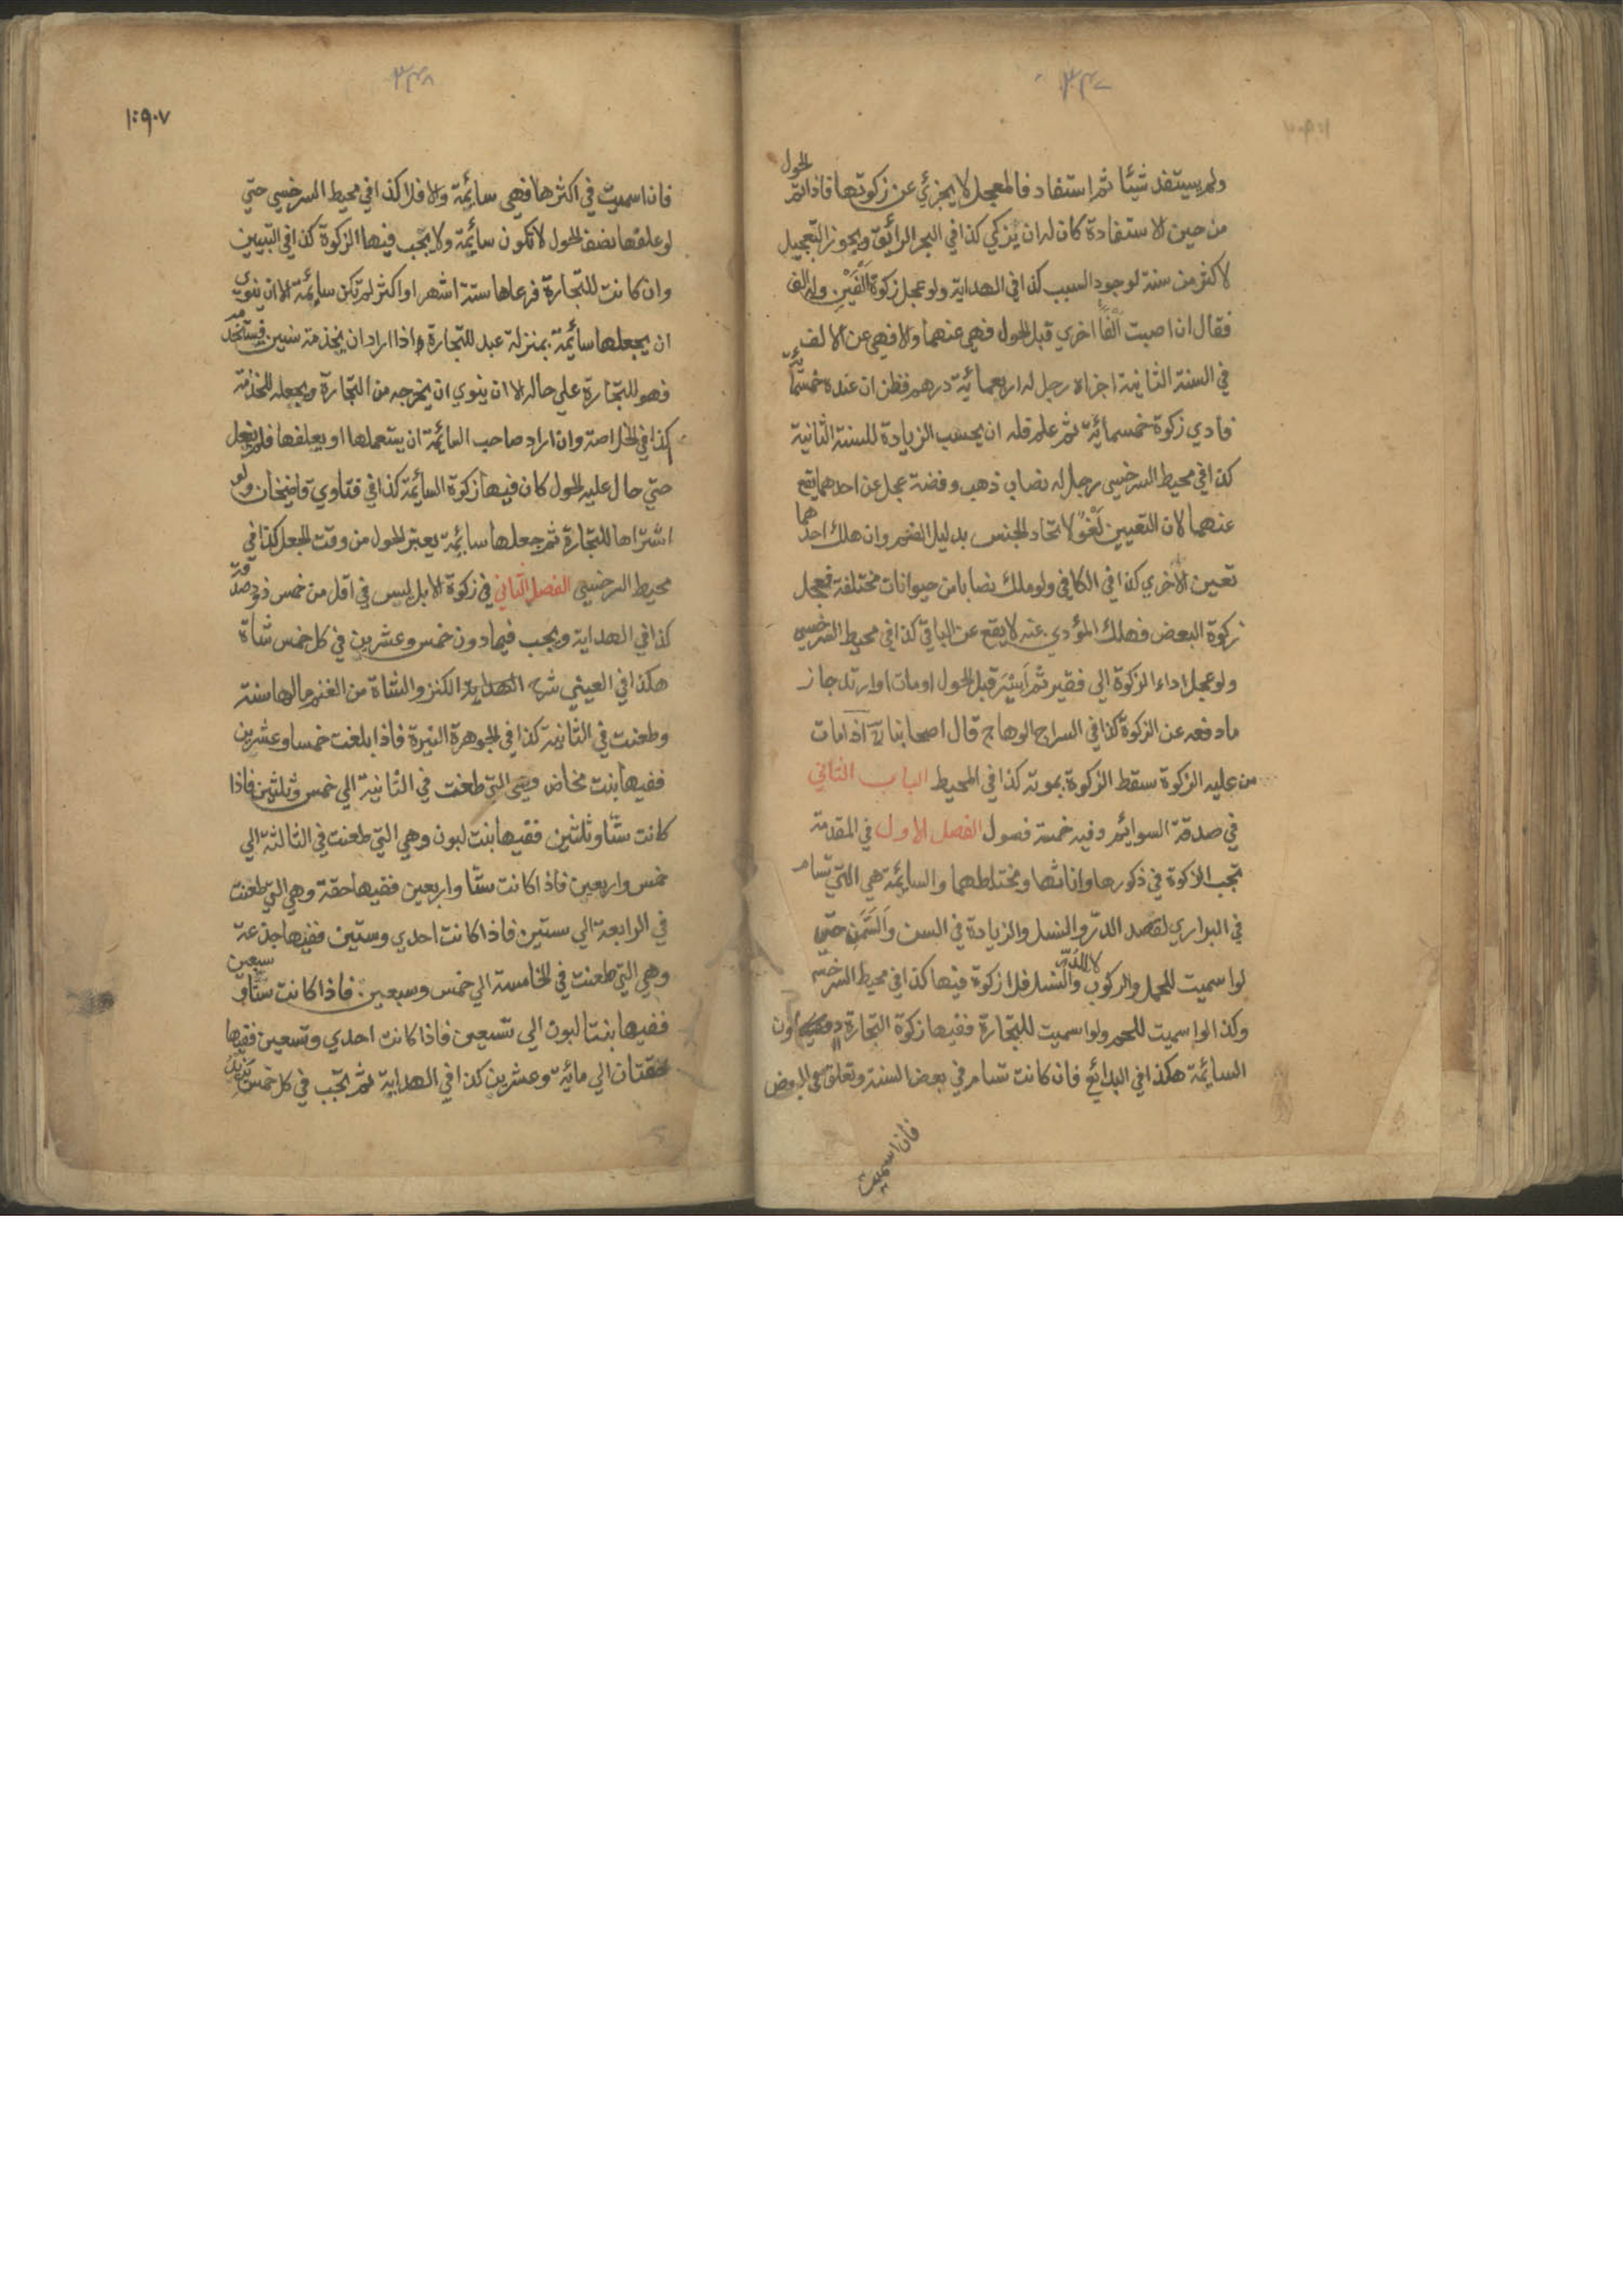 ٣٤٧
ولم يستفد شيئا ثم استفاد فالمعجل لا يجزئ عن زكوتها فاذا تم الحول
من حين الاستفادة كان له ان يزكي كذا في البحر الرائق ويجوز التعجيل
لاكثر من سنة لوجود السبب كذا في الهداية ولو عجل زكوة الفين وله الف
فقال ان اصبت الفا اخري قبل الحول فهي عنهما والا فهي عن الالف
في السنة الثانية اجزاه رجل له اربعمائة درهم فظن ان عنده خمسمائة
فادي زكوة خمسمائة ثم علم فله ان يحسب الزيادة للسنة الثانية
كذا في محيط السرخسي رجل له نصاب ذهب وفضة عجل عن احدهما يقع
عنهما لان التعيين لغو لاتحاد الجنس بدليل الضم وان هلك احدهما
تعين الاخري كذا في الكافي ولو ملك نصابا من حيوانات مختلفة فعجل
زكوة البعض فهلك المؤدي عنه لا يقع عن الباقي كذا في محيط السرخسي
ولو عجل اداء الزكوة الي فقير ثم ايسر قبل الحول او مات او ارتد جاز
ما دفعه عن الزكوة كذا في السراج الوهاج قال اصحابنا رح اذا مات
من عليه الزكوة سقط الزكوة بموته كذا في المحيط الباب الثاني
في صدقة السوائم وفيه خمسة فصول الفصل الاول في المقدمة
تجب الزكوة في ذكورها واناثها ومختلطهما والسائمة هي التي تسام
في البواري لقصد الدر والنسل والزيادة في السن والسمن حتي
لو اسميت للحمل والركوب لا للدر والنسل فلا زكوة فيها كذا في محيط السرخسي
وكذا لو اسميت للحم ولو اسميت للتجارة ففيها زكوة التجارة دون
السائمة هكذا في البدائع فان كانت تسام في بعض السنة وتعلف في البعض
فان اسميت
٣٤٨
١٠٩٠٧
فان اسميت في اكثرها فهي سائمة والا فلا كذا في محيط السرخسي حتي
لو علفها نصف الحول لا تكون سائمة ولا يجب فيها الزكوة كذا في التبيين
وان كانت للتجارة فرعاها ستة اشهر او اكثر لم تكن سائمة الا ان ينوي
ان يجعلها سائمة بمنزلة عبد للتجارة واذا اراد ان يخدمه سنين فيستخدمه
فهو للتجارة علي حاله الا ان ينوي ان يخرجه من التجارة ويجعله للخدمة
كذا في الخلاصة وان اراد صاحب السائمة ان يستعملها او يعلفها فلم يفعل
حتي حال عليه الحول كان فيها زكوة السائمة كذا في فتاوي قاضيخان ولو
اشتراها للتجارة ثم جعلها سائمة يعتبر الحول من وقت الجعل كذا في
محيط السرخسي الفصل الثاني في زكوة الابل ليس في اقل من خمس ذود صدقة
كذا في الهداية ويجب فيما دون خمس وعشرين في كل خمس شاة
هكذا في العيني شرح الهداية الكنز والشاة من الغنم ما لها سنة
وطعنت في الثانية كذا في الجوهرة النيرة فاذا بلغت خمسا وعشرين
ففيها بنت مخاض وهي التي طعنت في الثانية الي خمس وثلثين فاذا
كانت ستا وثلثين ففيها بنت لبون وهي التي طعنت في الثالثة الي
خمس واربعين فاذا كانت ستا واربعين ففيها حقة وهي التي طعنت
في الرابعة الي ستين فاذا كانت احدي وستين ففيها جذعة
وهي التي طعنت في الخامسة الي خمس وسبعين فاذا كانت ستا وسبعين
ففيها بنتا لبون الي تسعين فاذا كانت احدي وتسعين ففيها
حقتان الي مائة وعشرين كذا في الهداية ثم تجب في كل خمس